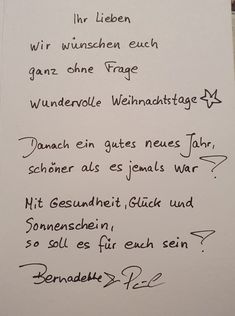 Ihr Lieben
wir wünschen euch
ganz ohne Frage
wundervolle Weihnachtstage
Danach ein gutes neues Jahr,
schöner als es jemals war
Mit Gesundheit, Glück und
Sonnenschein,
so soll es für euch sein
Bernadette